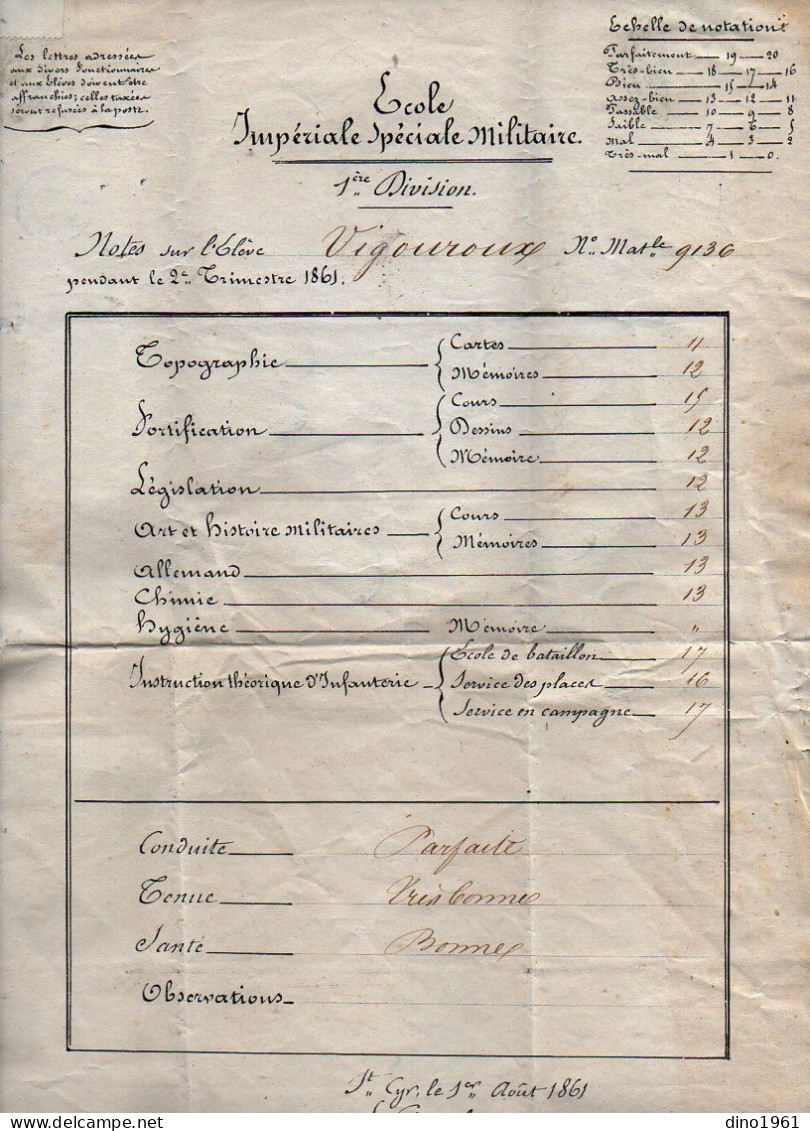 Les lettres adressées
aux divers fonctionnaires
et aux Élèves doivent être
affranchies; celles taxées
seront refusées à la poste.
Echelle de notation
Parfaitement — 19 — 20
Très-bien — 18 — 17 — 16
Bien — 15 — 14
Assez-bien — 13 — 12 — 11
Passable — 10 — 9 — 8
Faible — 7 — 6 — 5
Mal — 4 — 3 — 2
Très-mal — 1 — 0.
Ecole
Impériale Spéciale Militaire.
1ère Division.
Notes sur l'Elève Vigouroux No. Matle 9136
pendant le 2e Trimestre 1861.
Topographie
Cartes 11
Mémoires 12
Fortification
Cours 15
Dessins 12
Mémoire 12
Législation 12
Art et histoire militaires
Cours 13
Mémoires 13
Allemand 13
Chimie 13
Hygiène Mémoire "
Instruction théorique d'Infanterie
Ecole de bataillon 17
Service des places 16
Service en campagne 17
Conduite Parfaite
Tenue Très bonne
Santé Bonne
Observations
St Cyr, le 1er Août 1861
dino1961